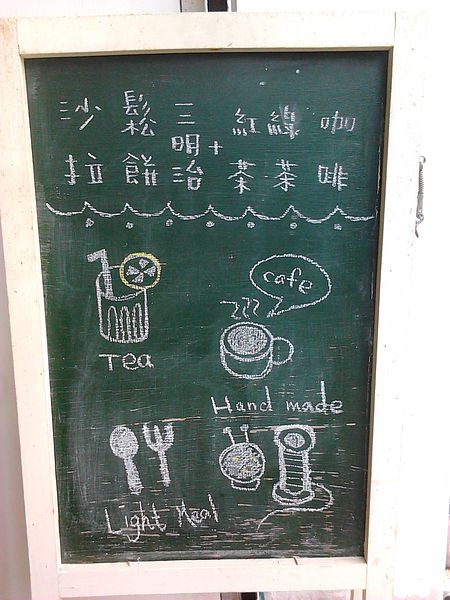 咖啡
綠茶
紅茶
+
三明治
鬆餅
沙拉
Tea
cafe
Hand made
Light Meal